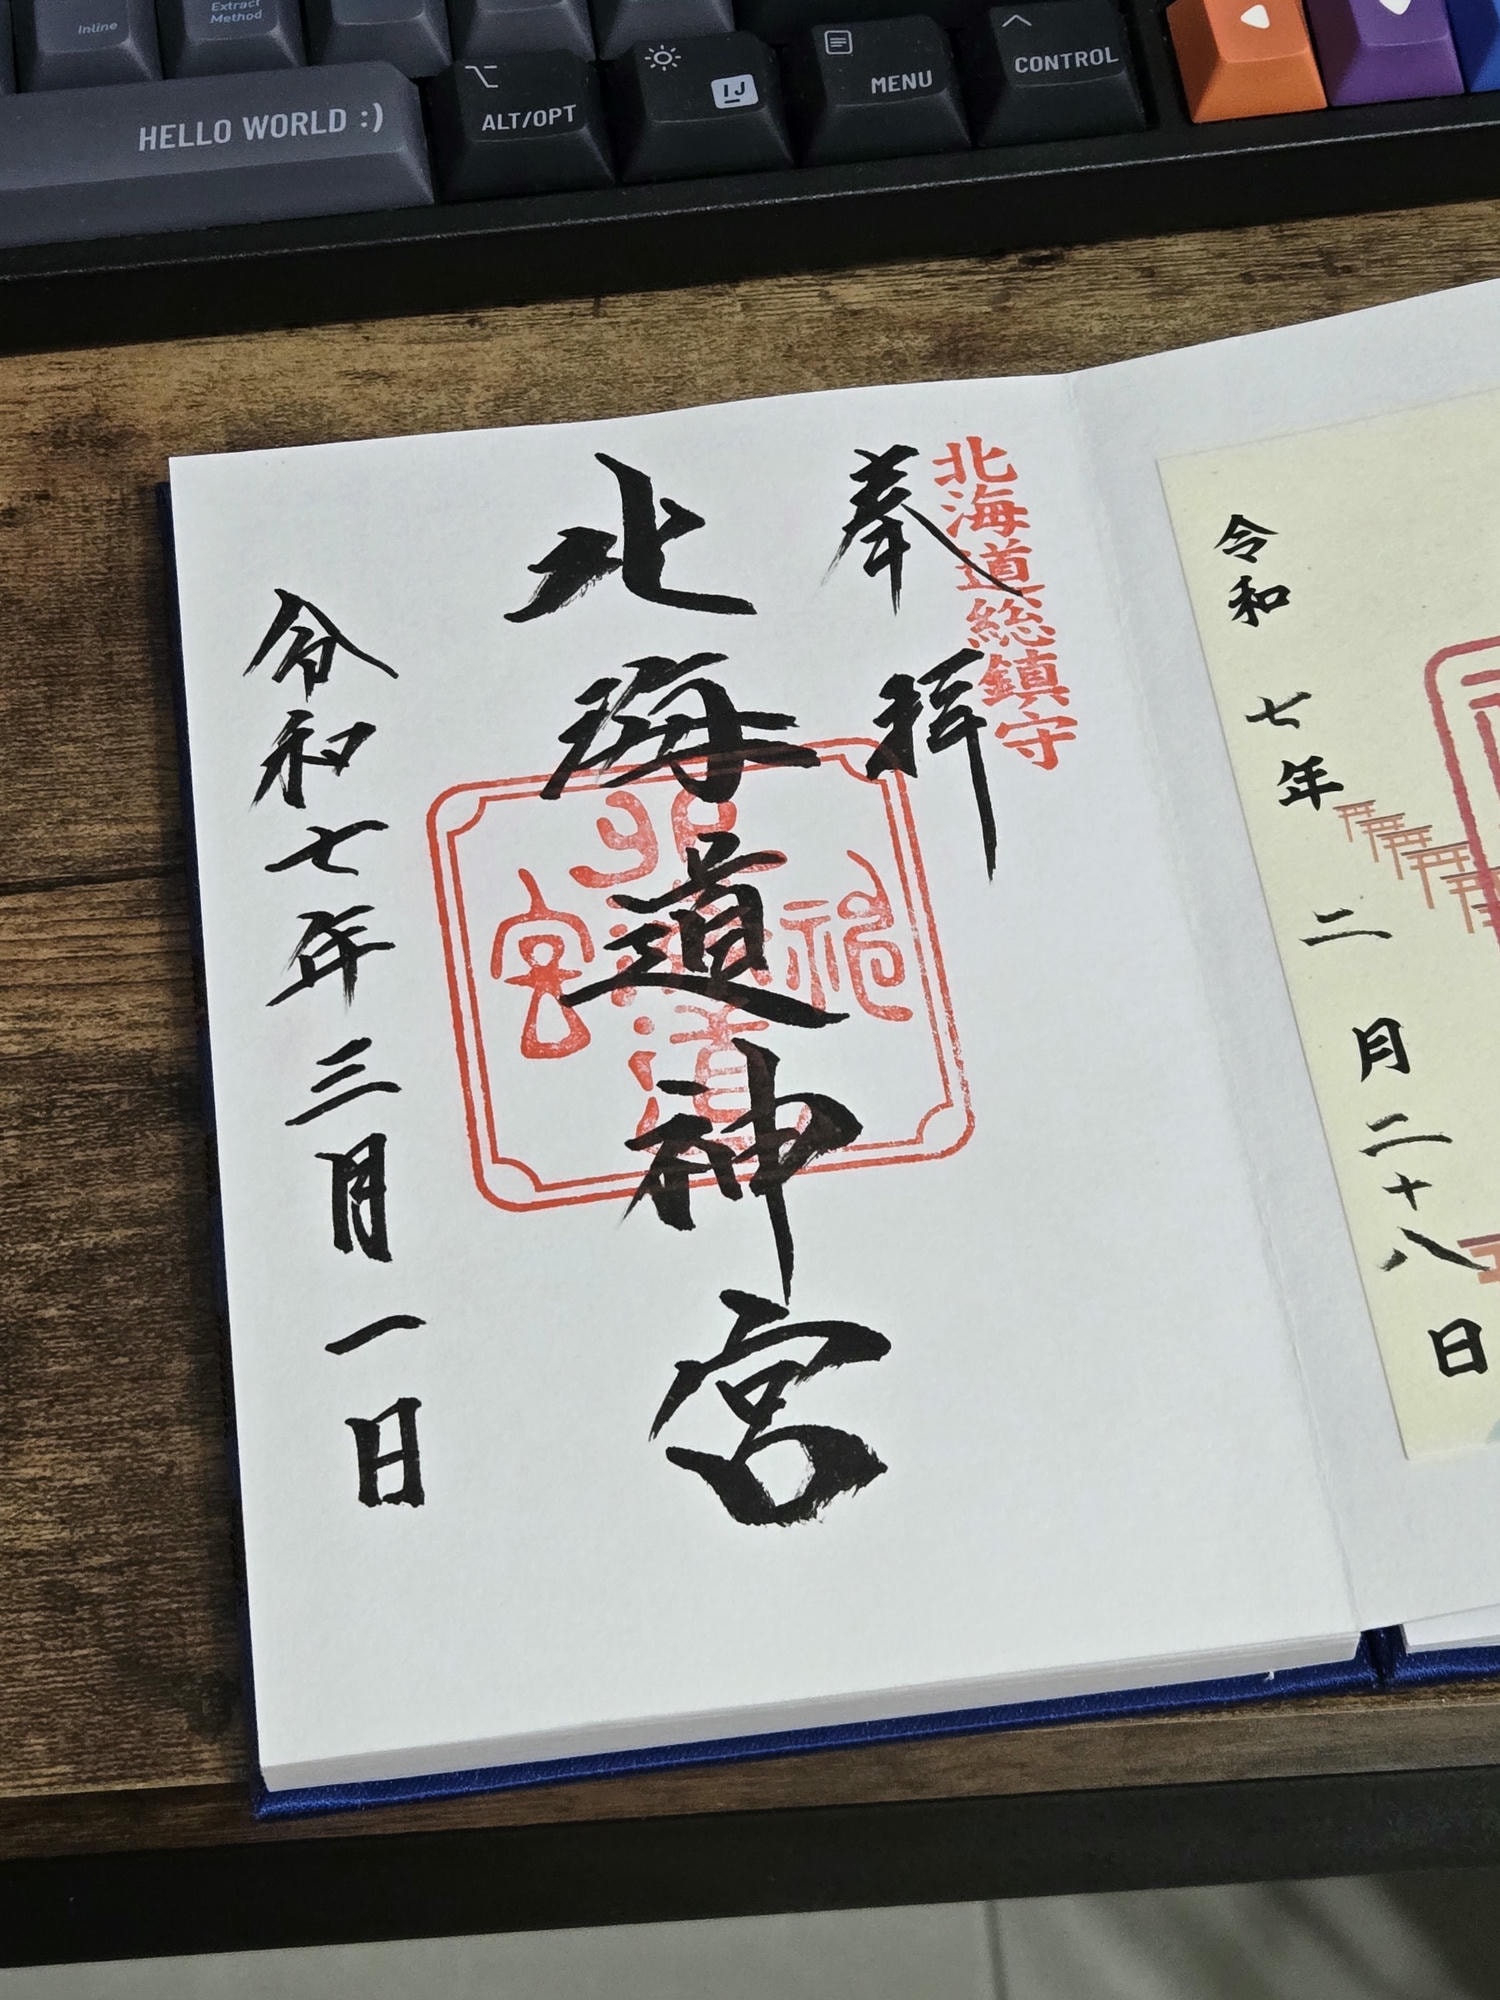 Inline
Extract
Method
HELLO WORLD :)
ALT/OPT
IJ
MENU
CONTROL
北海道総鎮守
奉拝
北海道神宮
北海道神宮
令和七年三月一日
令和七年二月二十八日